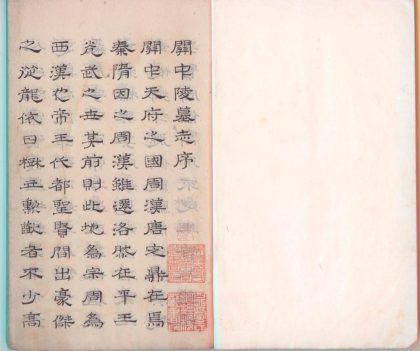 關中陵墓志序
關中天府之國周漢唐定鼎在焉
秦隋因之周漢雖遷洛然在平王
光武之世其前則此地為宗周為
西漢也帝王代都聖賢間出豪傑
之從龍依日樹立勳猷者不少高